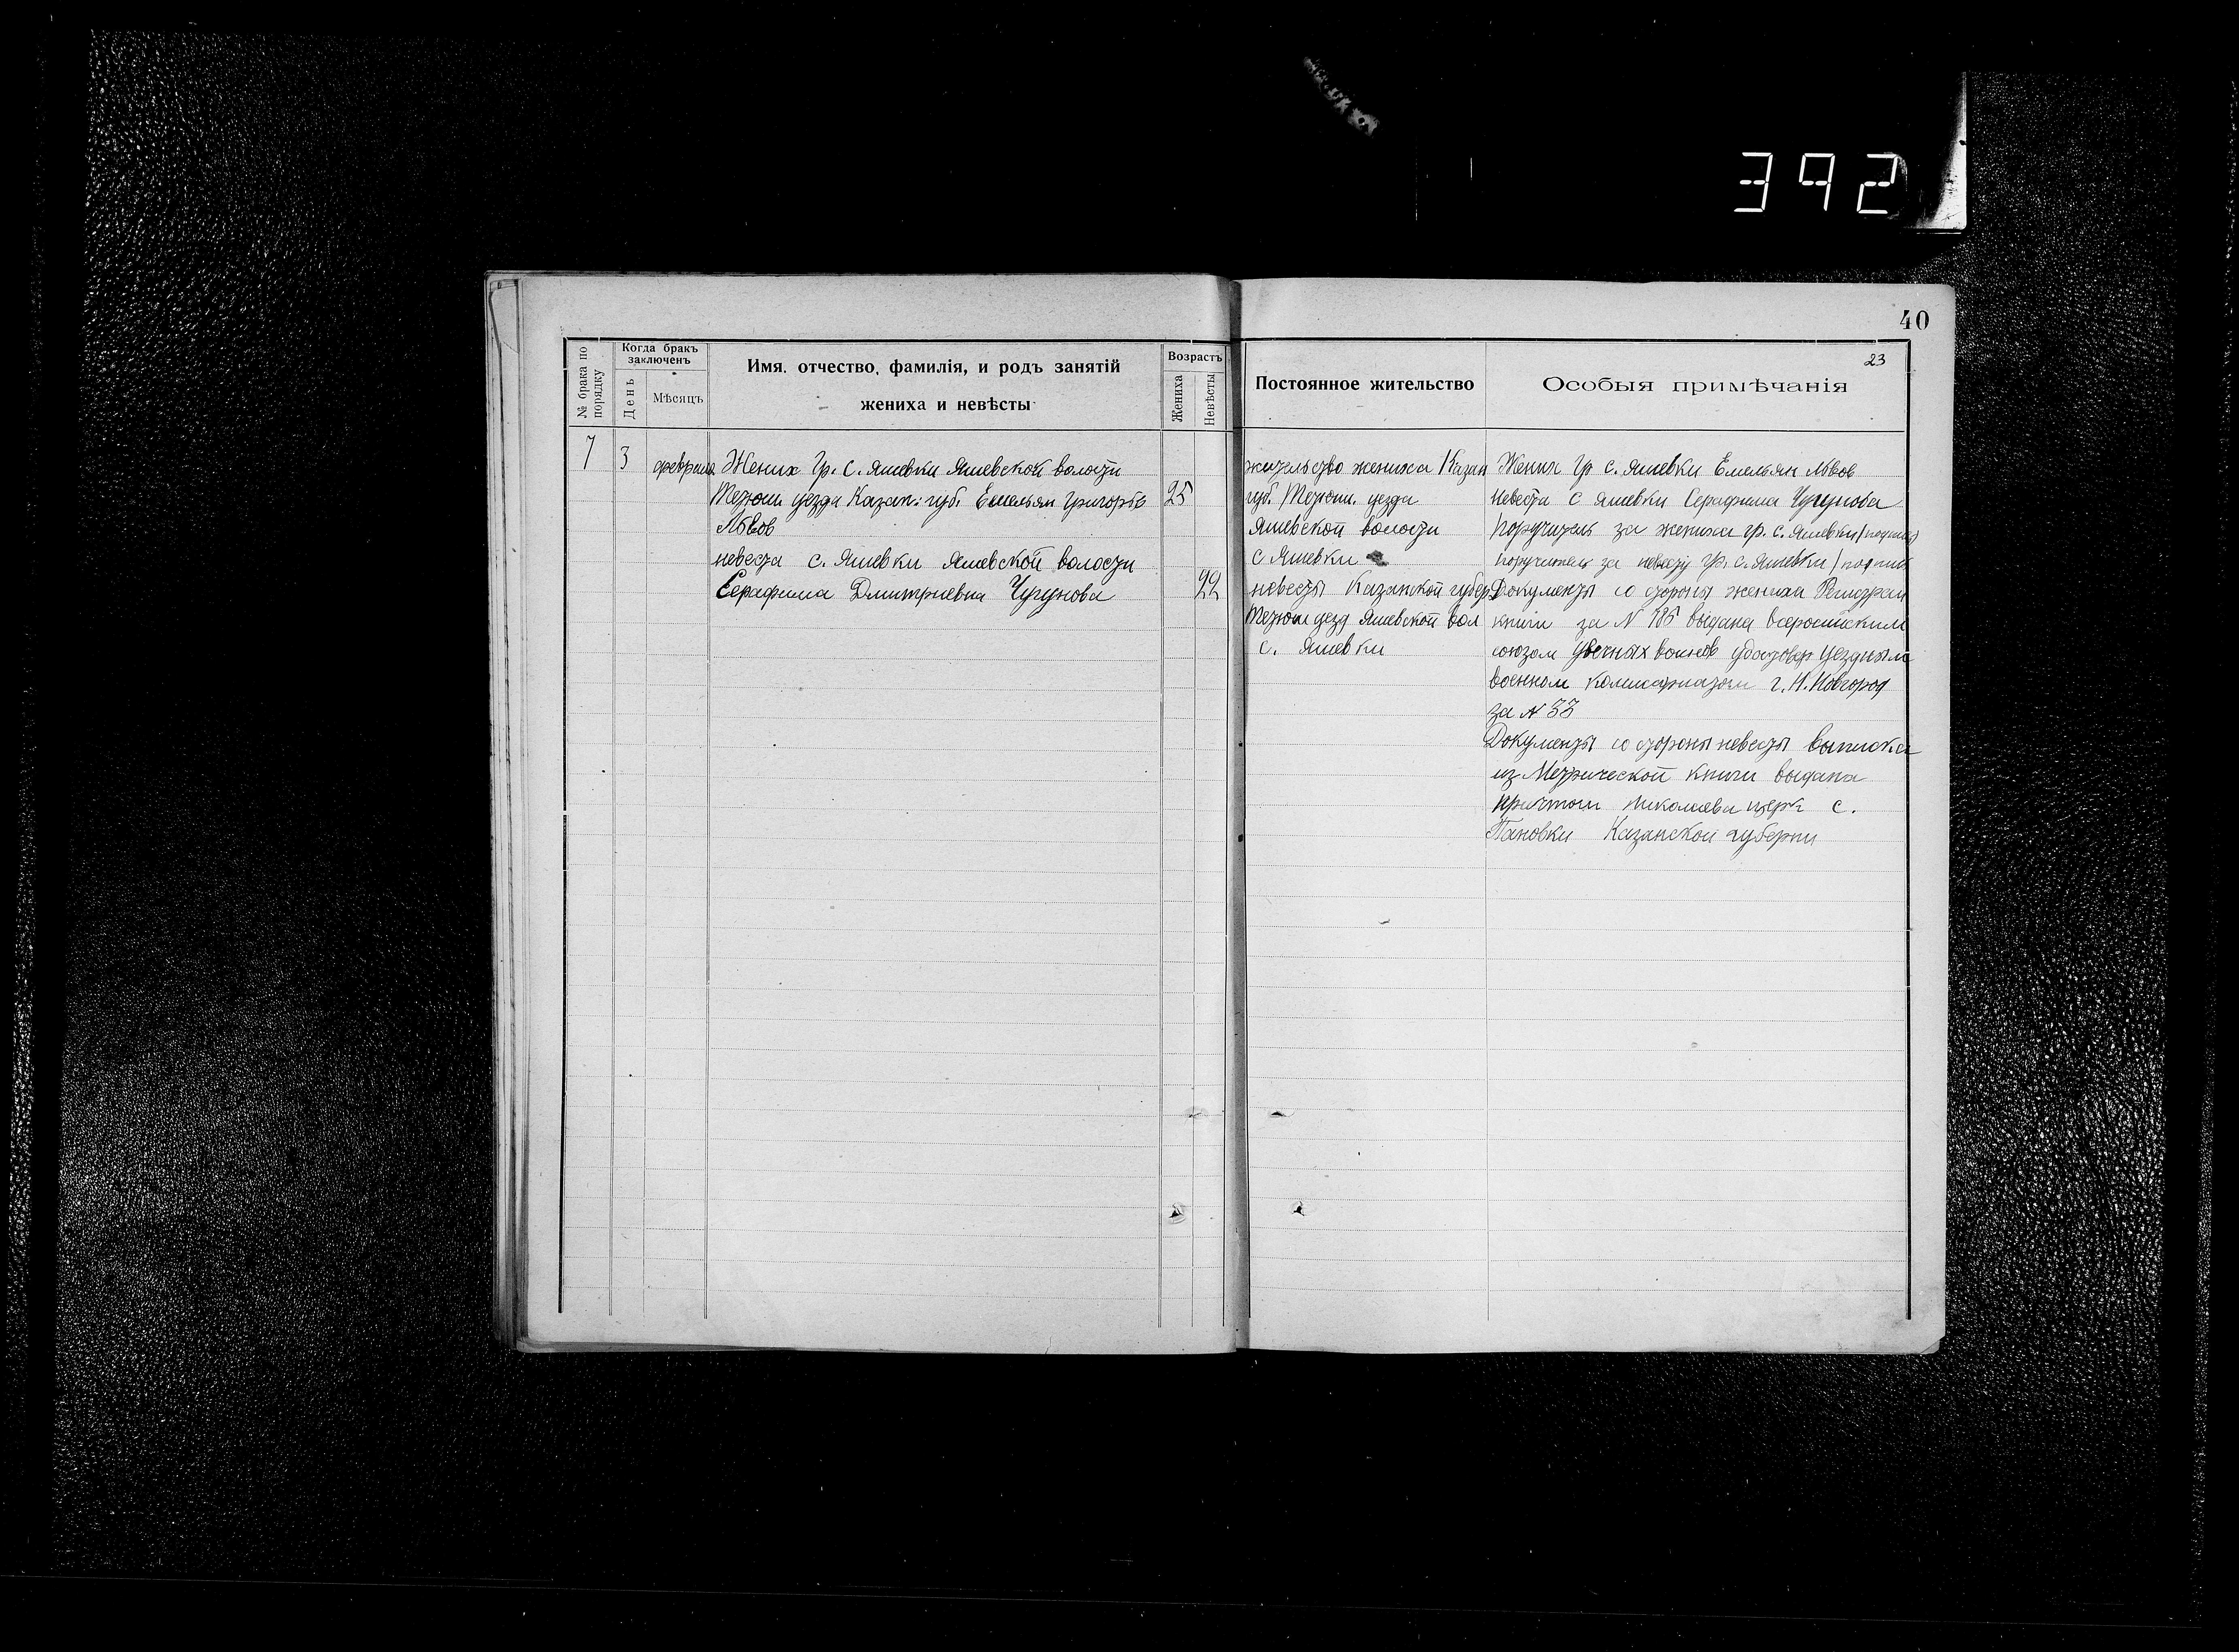 392
40
23
№ брака по порядку
Когда бракъ заключенъ
День
Мѣсяцъ
Имя, отчество, фамилія, и родъ занятій
жениха и невѣсты
Возрастъ
Жениха
Невѣсты
Постоянное жительство
Особыя примѣчанія
7 3 февраля Жених Гр. с. Яшевки Яшевской волости
Тетюш уезда Казан: губ. Емельян Григорьев 25
Львов
невеста с. Яшевки Яшевской волости
Серафима Дмитриевна Чугунова 22
жительство жениха Казан
губ. Тетюш. уезда
Яшевской волости
с Яшевки
невесты Казанской губер
Тетюш уезд Яшевской вол
с. Яшевки
Жених Гр с. Яшевки Емельян Львов
Невеста с Яшевки Серафима Чугунова
Поручитель за жениха гр. с. Яшевки (подпись)
поручитель за невесту гр. с. Яшевки (подпись
Документы со стороны жениха
книги за N 785 выдана всероссийским
союзом увечных воинов удостовер уездным
военном комисариатом г. Н. Новгород
за N 33
Документы со стороны невесты выписка
из Метрической книги выдана
причтом николаевы церк с.
Пановки Казанской губерни